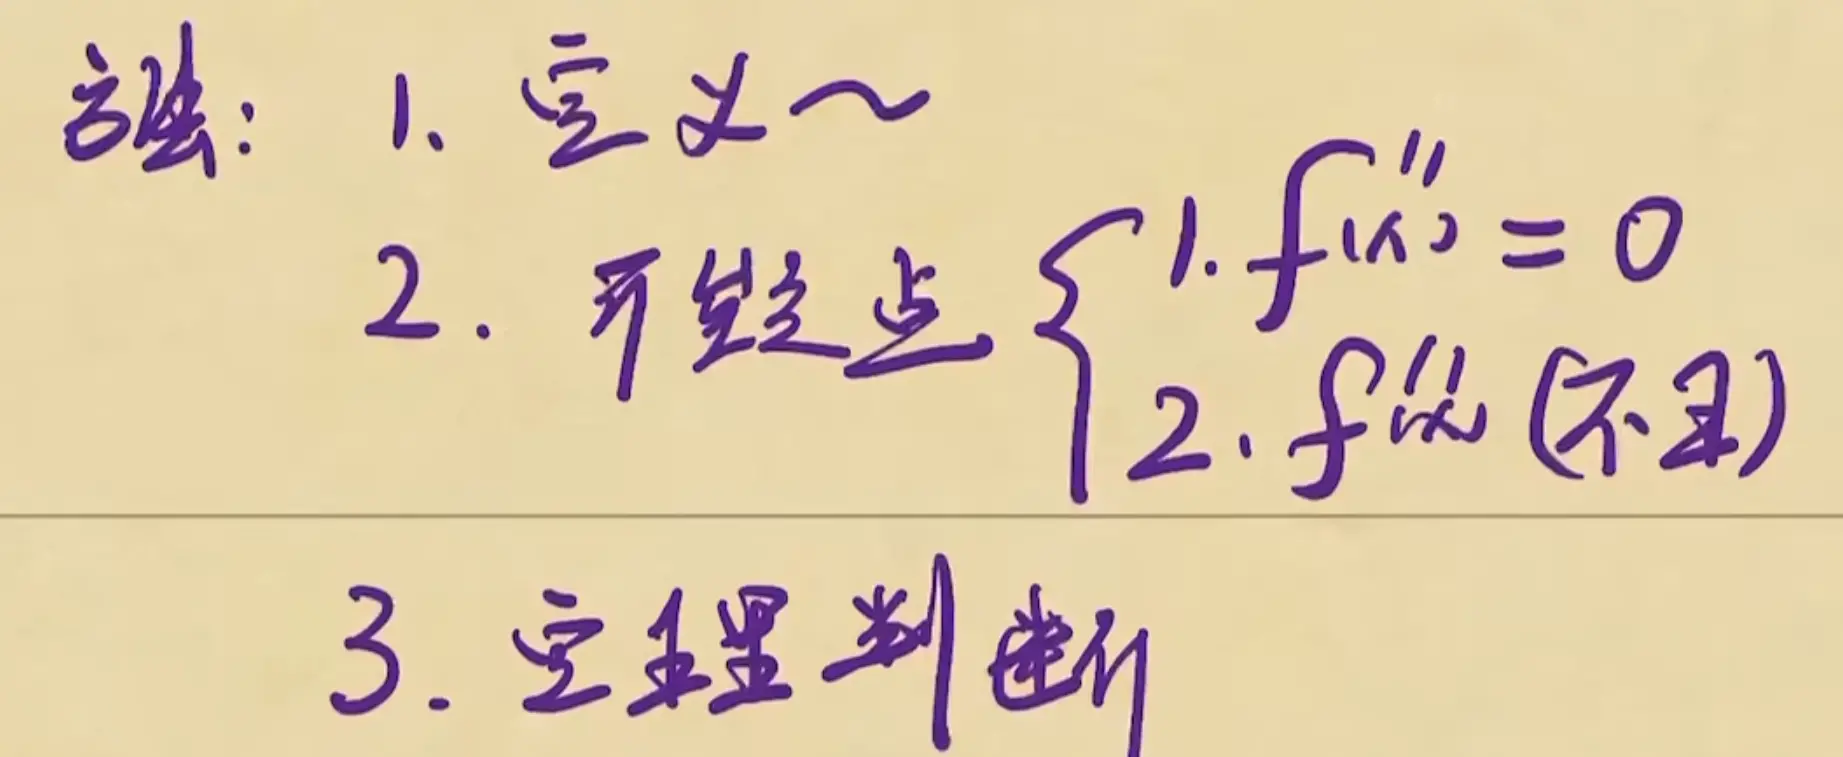 方法: 1. 定义~
2. 可疑点 { 1. f''(x) = 0
2. f''(x) (不∃)
3. 定理判断